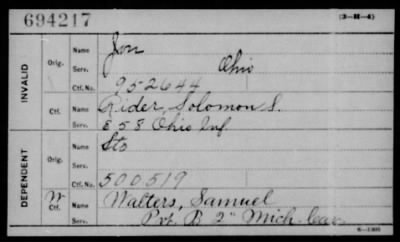 694217
(3-M-4)
INVALID
Orig.
Name Jon
Serv. Ohio
Ctf. No. 952644
Ctf.
Name Rider, Solomon S.
Serv. E 58 Ohio Inf
DEPENDENT
Orig.
Name Sto
Serv.
Ctf. No. 500519
W Ctf.
Name Walters, Samuel
Serv. Pvt. B 2" Mich. Cav.